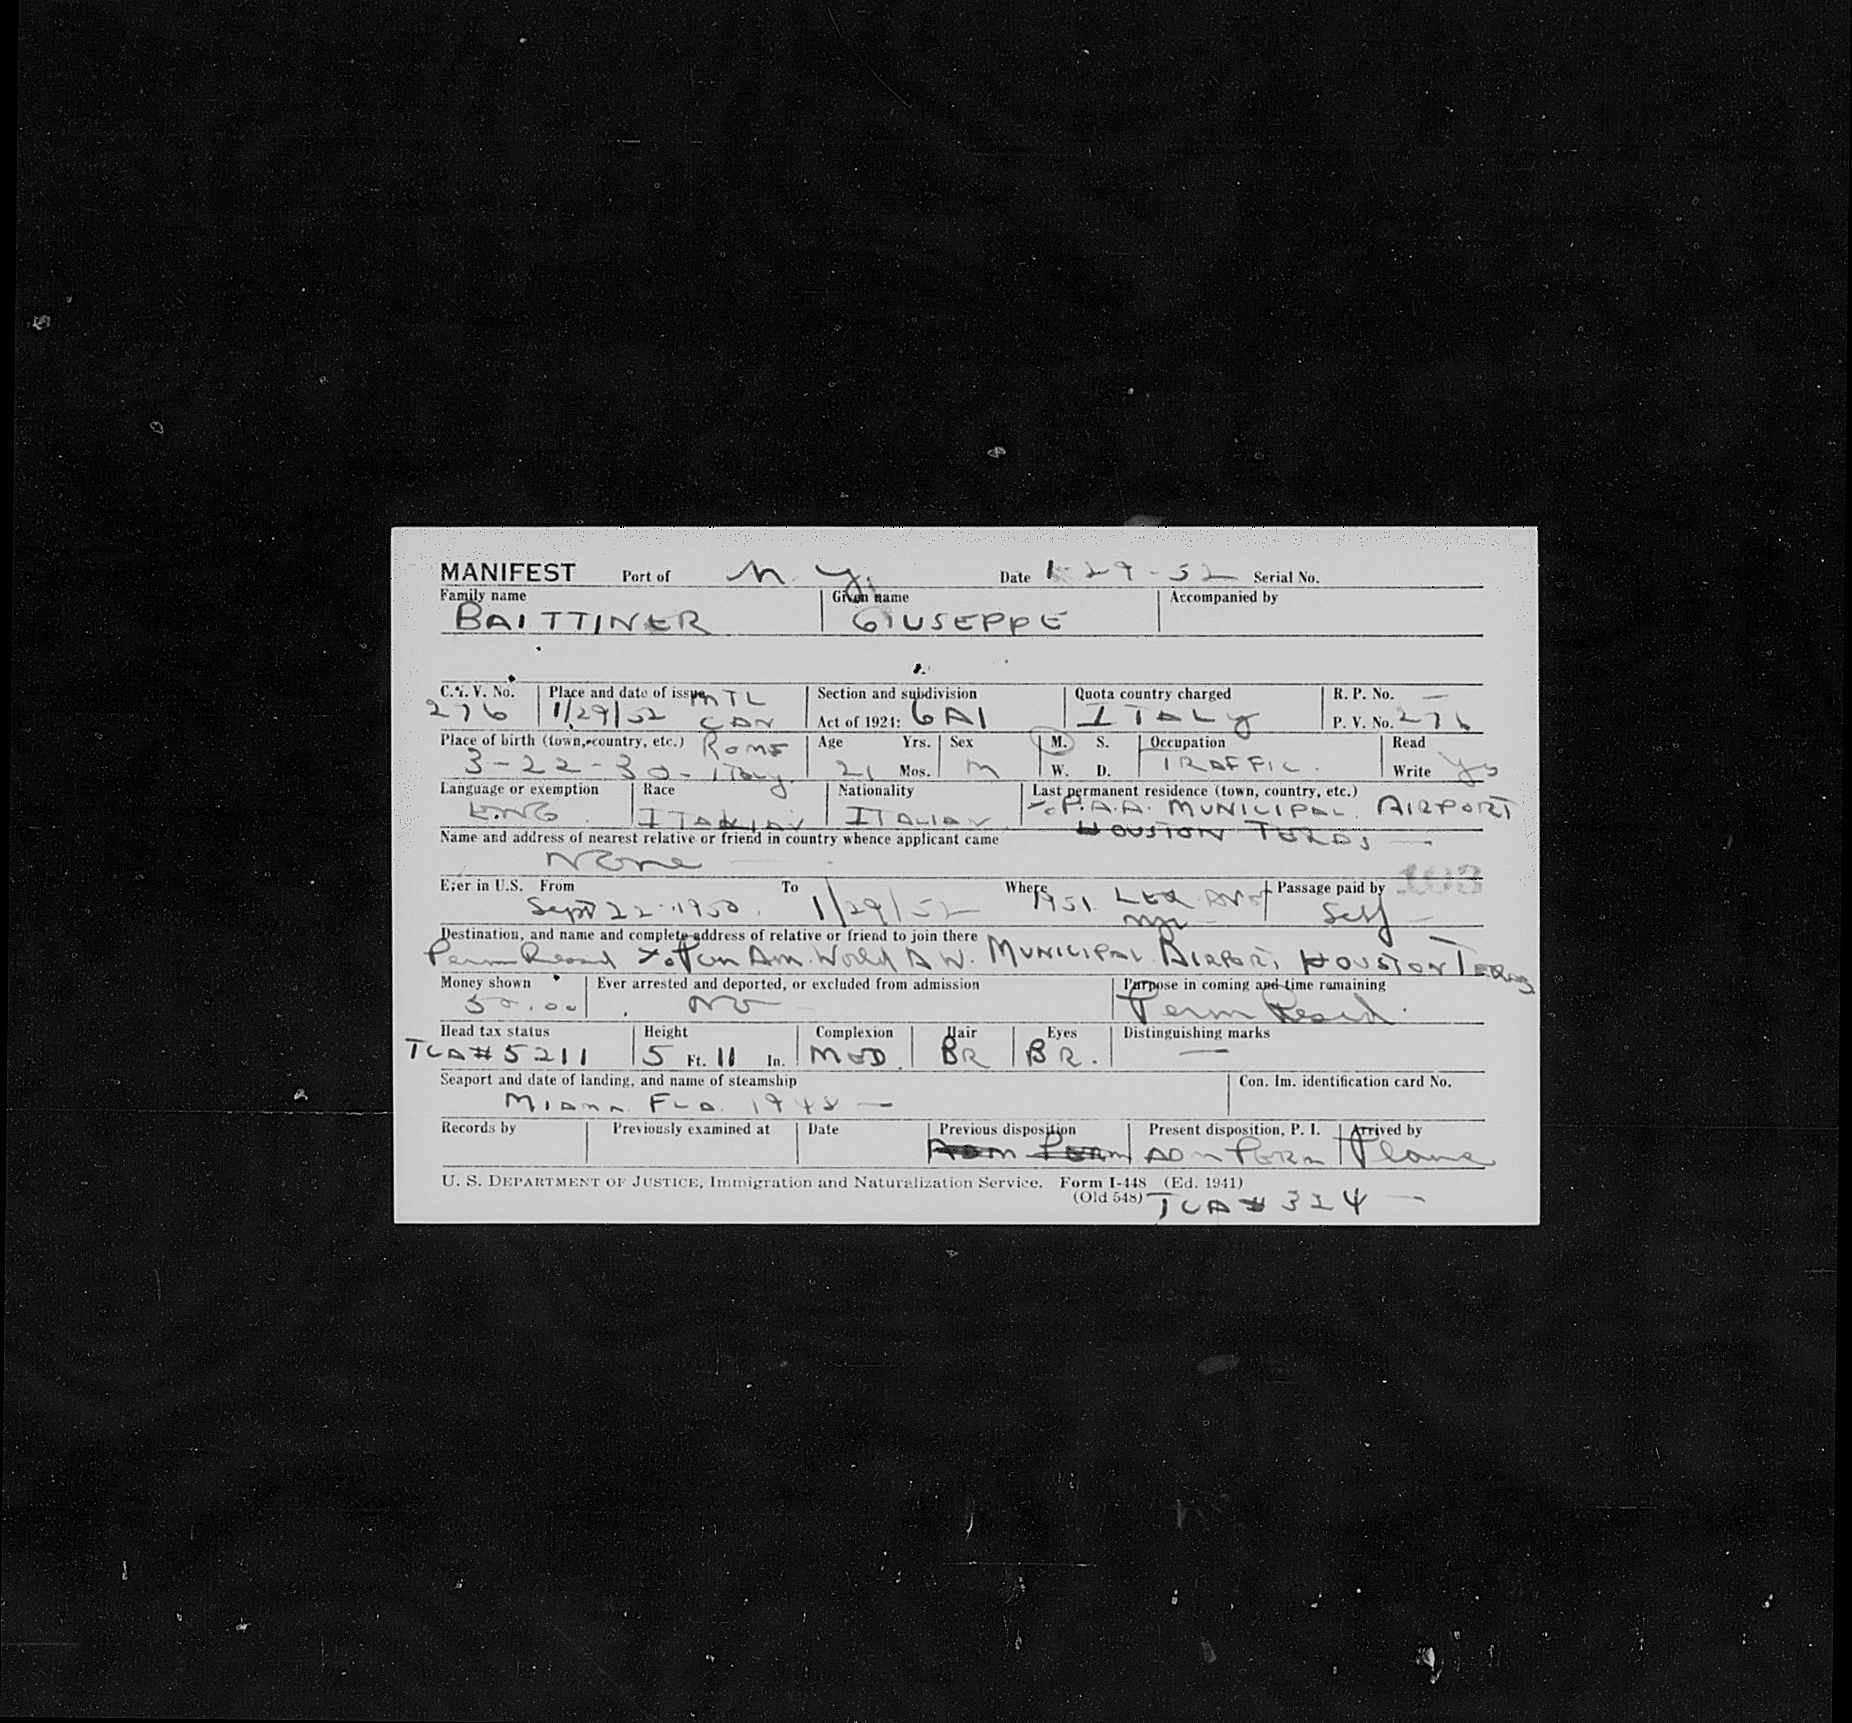 MANIFEST Port of N. Y. Date 1-29-52 Serial No.
Family name Given name Accompanied by
BAITTINER GIUSEPPE
C. I. V. No. Place and date of issue MTL Section and subdivision Quota country charged R. P. No. —
276 1/29/52 CAN Act of 1924: 6A1 ITALY P. V. No. 276
Place of birth (town, country, etc.) Rome Age Yrs. Sex M. S. Occupation Read
3-22-30- Italy 21 Mos. M W. D. TRAFFIC. Write Yes
Language or exemption Race Nationality Last permanent residence (town, country, etc.)
ENG ITALIAN ITALIAN c/o P.A.A. MUNICIPAL AIRPORT
HOUSTON TEXAS —
Name and address of nearest relative or friend in country whence applicant came
None
Ever in U.S. From To Where Passage paid by 103
Sept 22-1950. 1/29/52 1951 LEX AVE Self —
NY —
Destination, and name and complete address of relative or friend to join there
Perm Resid c/o Pan Am. World AW. MUNICIPAL AIRPORT HOUSTON TEXAS
Money shown Ever arrested and deported, or excluded from admission Purpose in coming and time remaining
50.00 NO Perm Resid.
Head tax status Height Complexion Hair Eyes Distinguishing marks
TCA# 5211 5 Ft. 11 In. MED. BR BR. —
Seaport and date of landing, and name of steamship Con. Im. identification card No.
MIAMI FLA. 1948 —
Records by Previously examined at Date Previous disposition Present disposition, P. I. Arrived by
ADM PERM ADM PERM Plane
U. S. DEPARTMENT OF JUSTICE, Immigration and Naturalization Service. Form I-448 (Ed. 1941)
(Old 548) TCA # 324 —